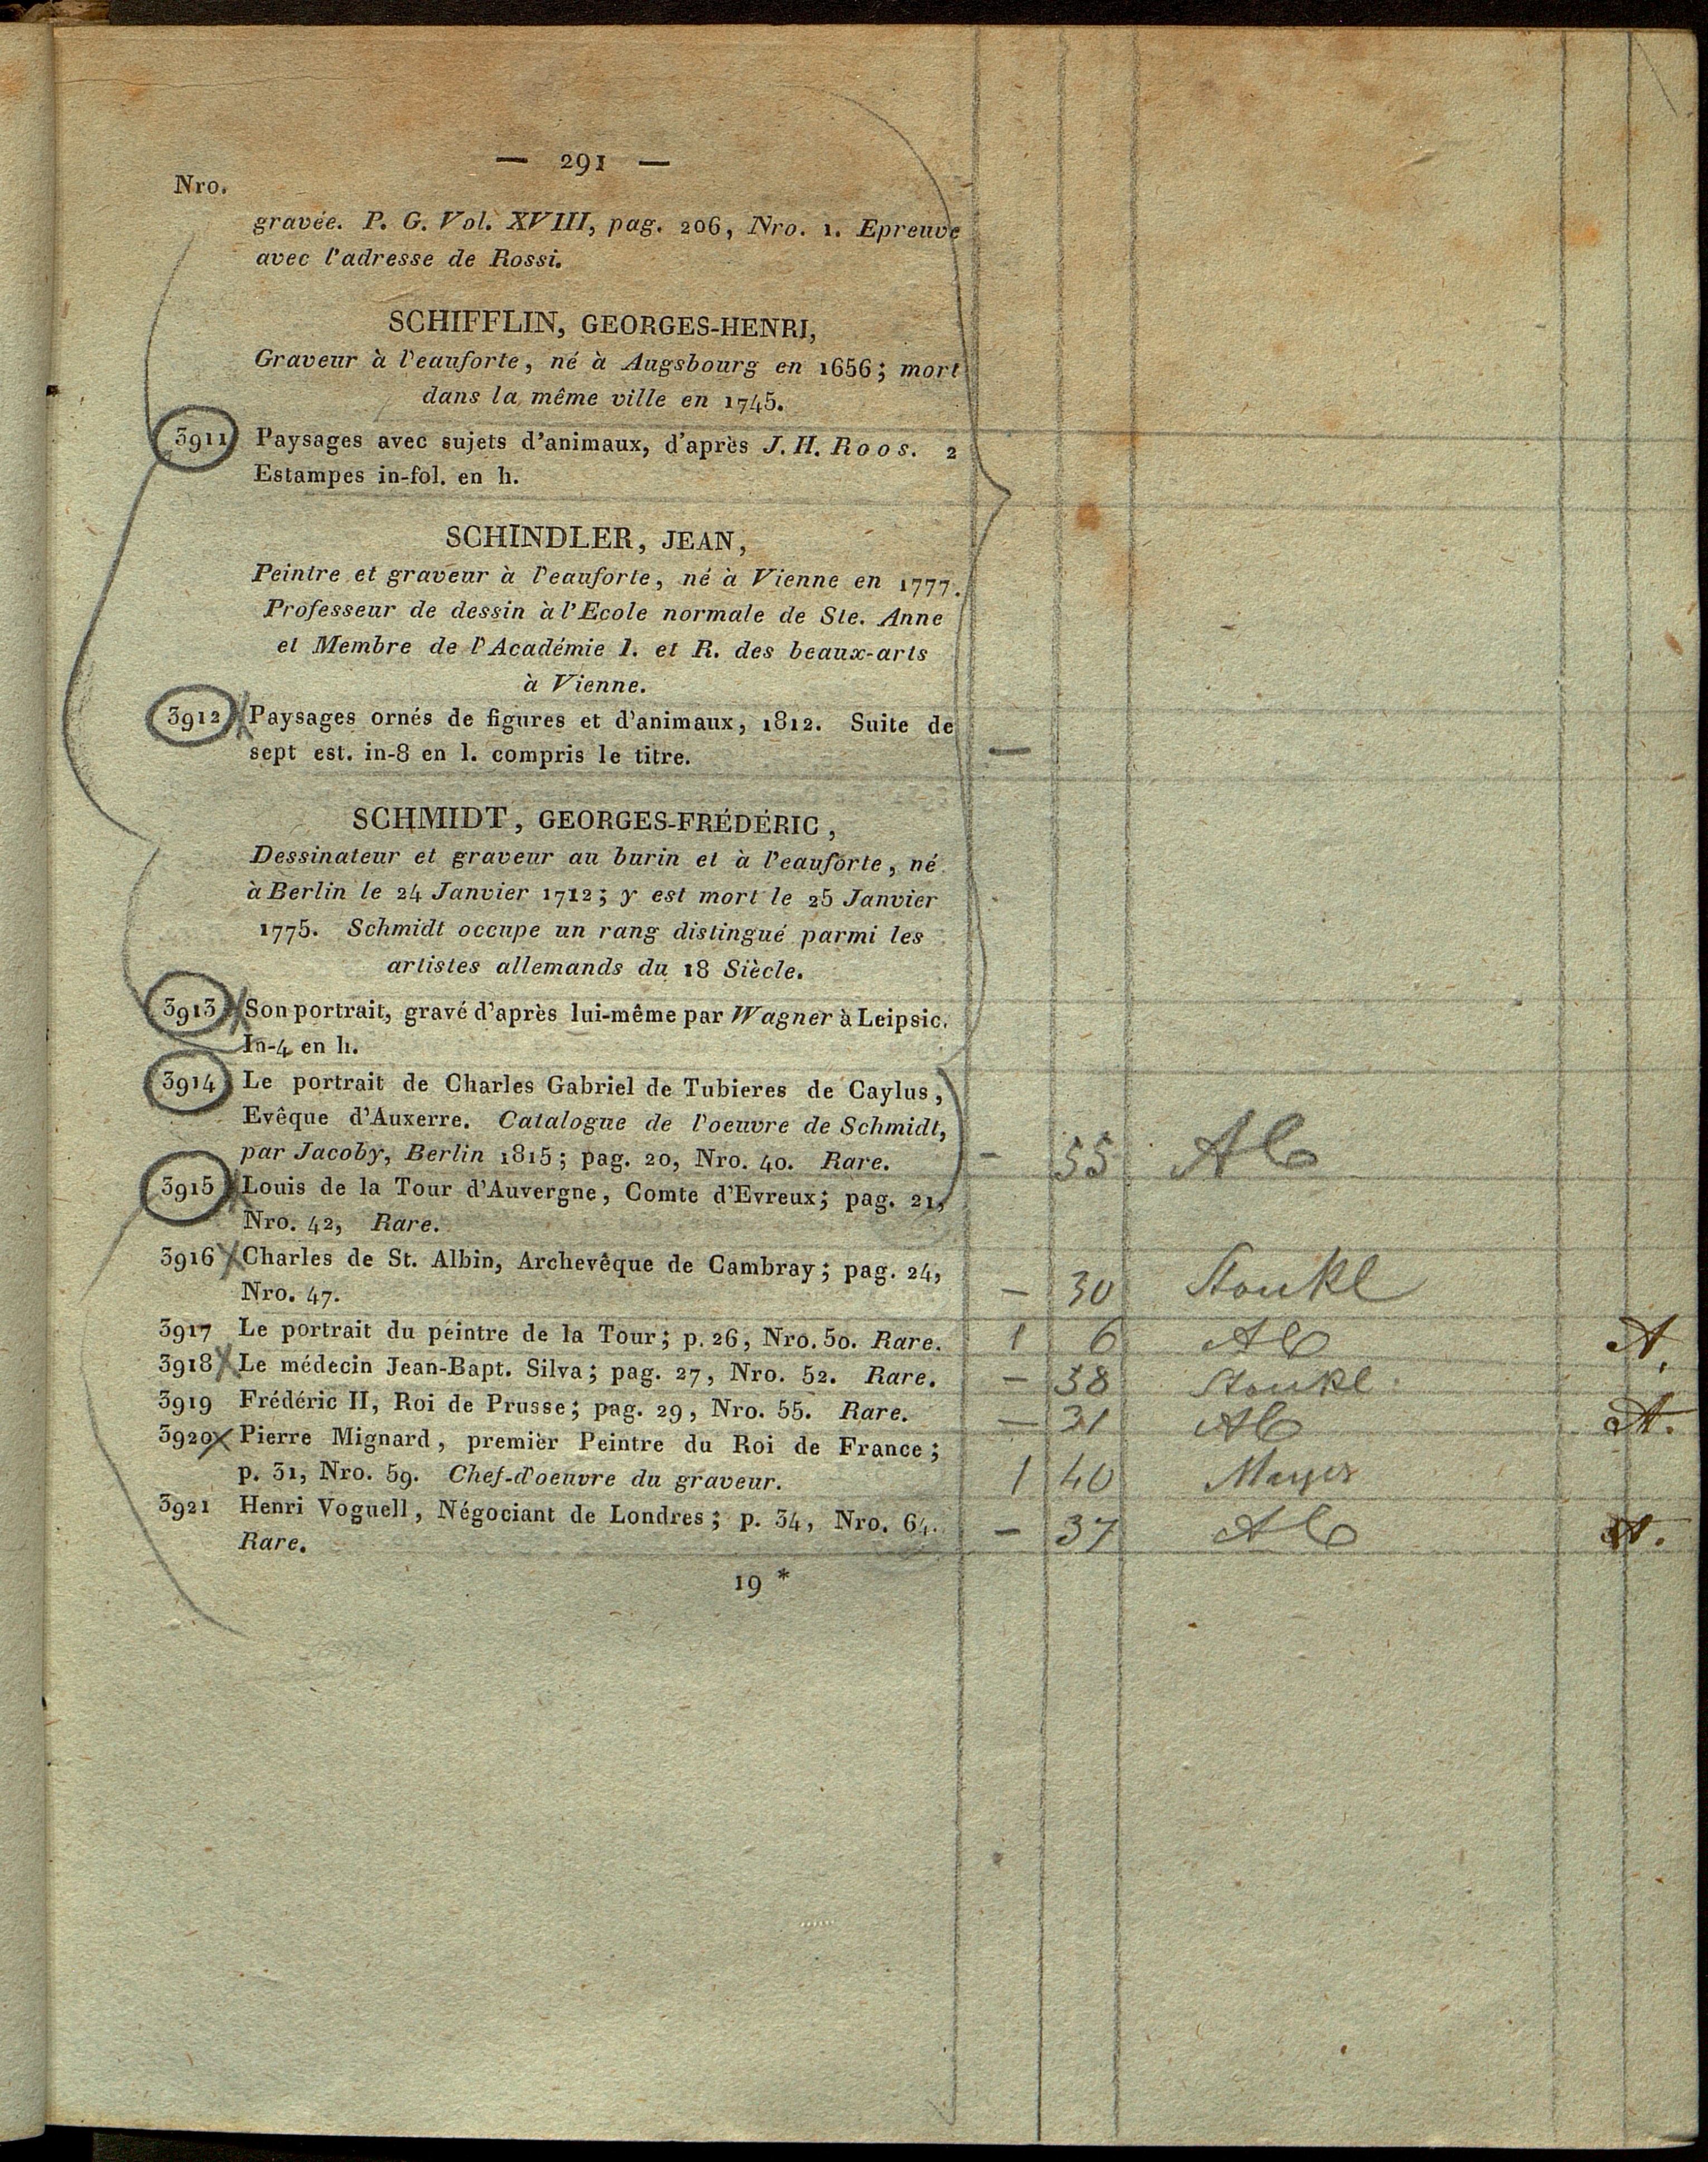 — 291 —
Nro.
gravée. P. G. Vol. XVIII, pag. 206, Nro. 1. Epreuve
avec l'adresse de Rossi.
SCHIFFLIN, GEORGES-HENRI,
Graveur à l'eauforte, né à Augsbourg en 1656; mort
dans la même ville en 1745.
3911 Paysages avec sujets d'animaux, d'après J. H. Roos. 2
Estampes in-fol. en h.
SCHINDLER, JEAN,
Peintre et graveur à l'eauforte, né à Vienne en 1777.
Professeur de dessin à l'Ecole normale de Ste. Anne
et Membre de l'Académie I. et R. des beaux-arts
à Vienne.
3912 Paysages ornés de figures et d'animaux, 1812. Suite de
sept est. in-8 en l. compris le titre. —
SCHMIDT, GEORGES-FRÉDÉRIC,
Dessinateur et graveur au burin et à l'eauforte, né
à Berlin le 24 Janvier 1712; y est mort le 25 Janvier
1775. Schmidt occupe un rang distingué parmi les
artistes allemands du 18 Siècle.
3913 Son portrait, gravé d'après lui-même par Wagner à Leipsic.
In-4 en h.
3914 Le portrait de Charles Gabriel de Tubieres de Caylus,
Evêque d'Auxerre. Catalogue de l'oeuvre de Schmidt,
par Jacoby, Berlin 1815; pag. 20, Nro. 40. Rare. — 55
3915 Louis de la Tour d'Auvergne, Comte d'Evreux; pag. 21,
Nro. 42, Rare.
3916 Charles de St. Albin, Archevêque de Cambray; pag. 24,
Nro. 47. — 30
3917 Le portrait du peintre de la Tour; p. 26, Nro. 50. Rare. 1 6 A.
3918 Le médecin Jean-Bapt. Silva; pag. 27, Nro. 52. Rare. — 38
3919 Frédéric II, Roi de Prusse; pag. 29, Nro. 55. Rare. — 31 A.
3920 Pierre Mignard, premier Peintre du Roi de France;
p. 31, Nro. 59. Chef-d'oeuvre du graveur. 1 40
3921 Henri Voguell, Négociant de Londres; p. 34, Nro. 64.
Rare. — 37 A.
19 *